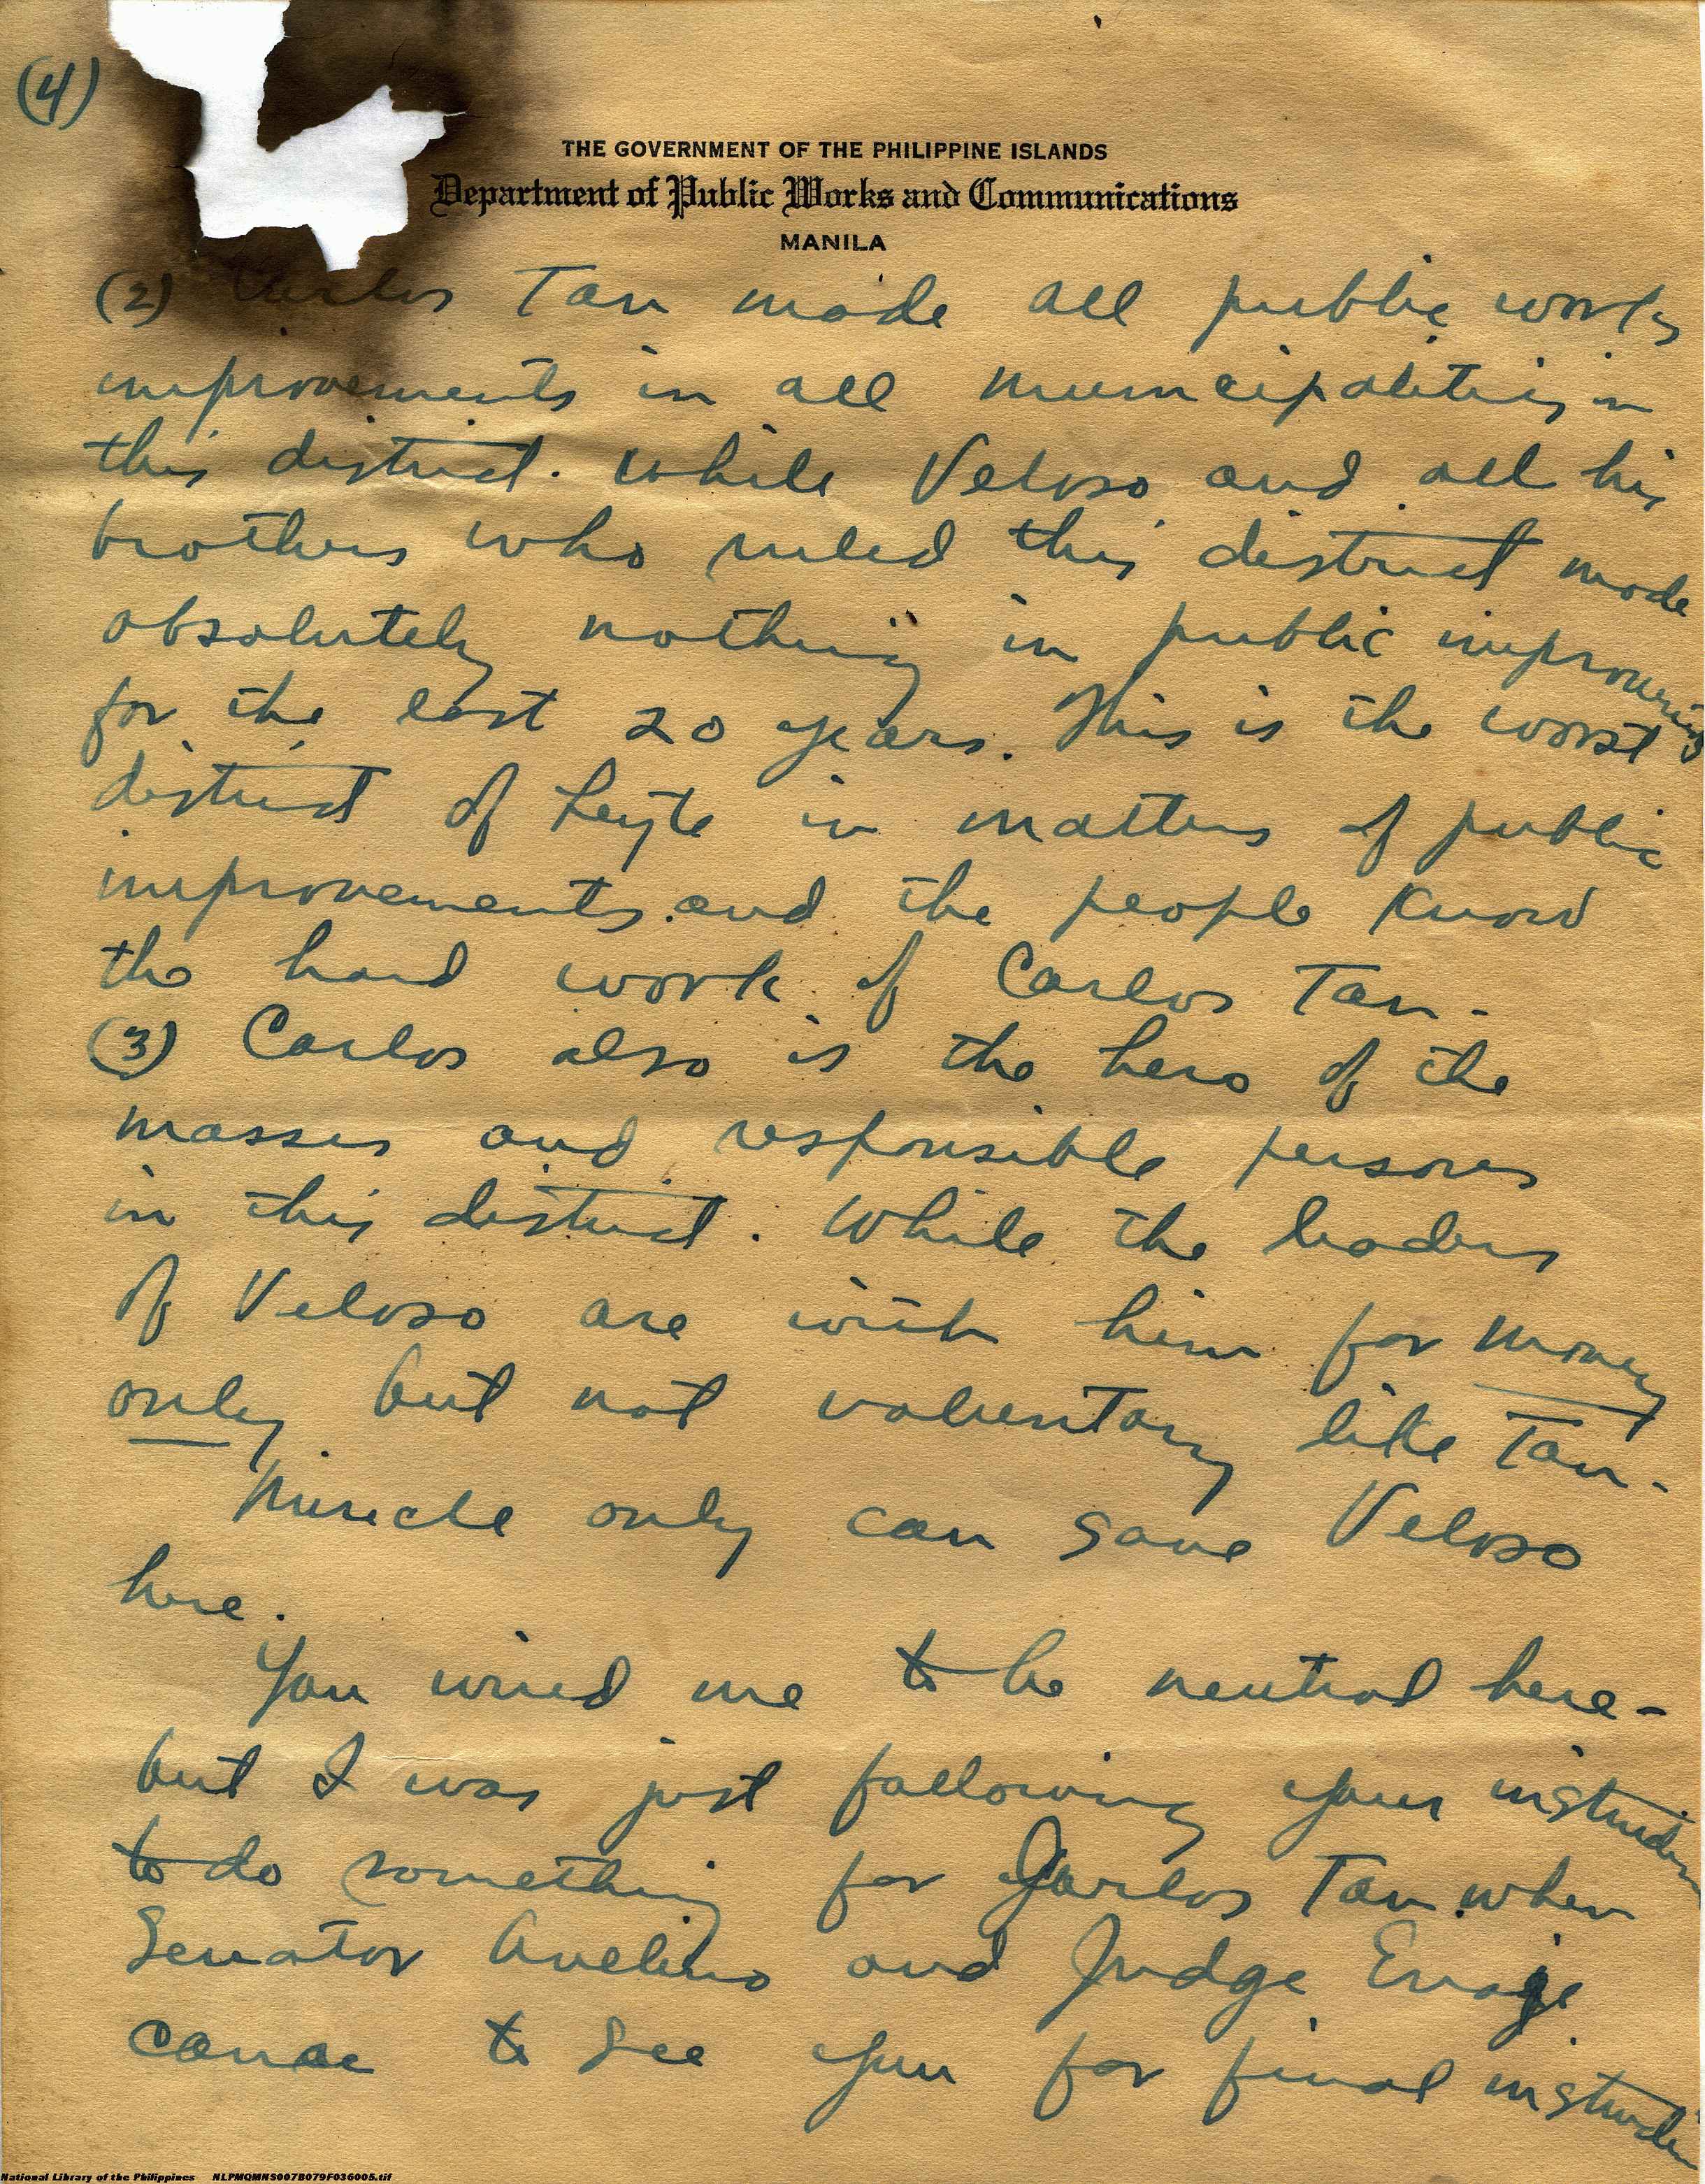 (4)
THE GOVERNMENT OF THE PHILIPPINE ISLANDS
Department of Public Works and Communications
MANILA
(2) Carlos Tan made all public works
improvements in all municipalities in
this district. While Veloso and all his
brothers who ruled this district made
absolutely nothing in public
for the last 20 years. This is the worst
district of Leyte in matters of public
improvements and the people know
the hard work of Carlos Tan.
(3) Carlos also is the hero of the
masses and responsible persons
in this district. While the leaders
of Veloso are with him for money
only but not voluntary like Tan.
Miracle only can save Veloso
here.
You wired me to be neutral here -
but I was just following your
to do something for Carlos Tan when
Senator Avelino and Judge
came to see you for final
National Library of the Philippines NLPMQMNS007B079F036005.tif